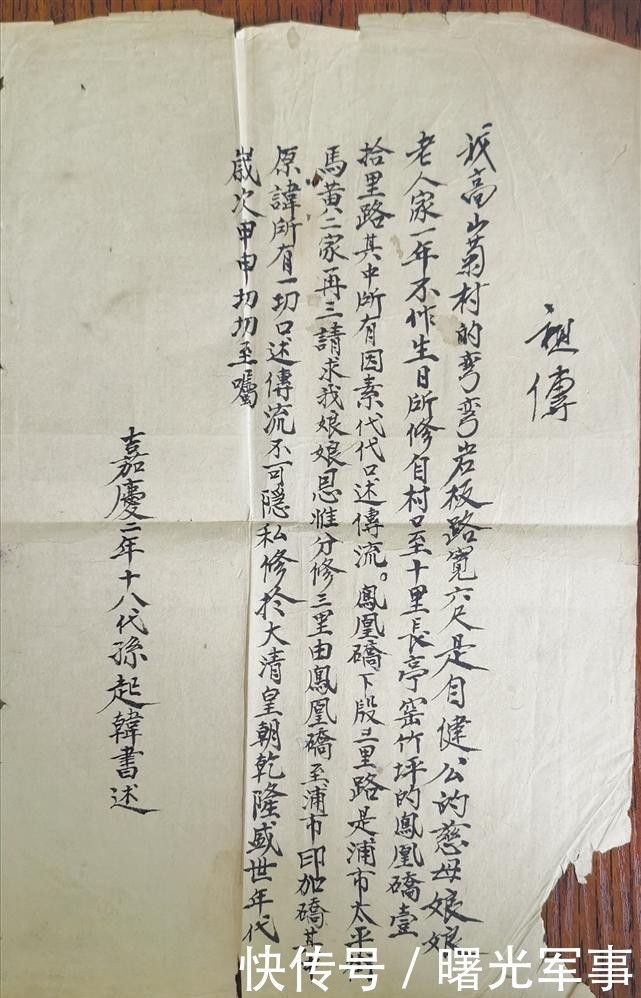 祖傳
我高山蒟村的弯弯岩板路寬六尺是自健公的慈母娘娘
老人家一年不作生日所修自村口至十里長亭窑竹坪的鳳凰礄壹
拾里路其中所有因素代代口述傳流。鳳凰礄下段三里路是浦市太平
馬黄二家再三請求我娘娘恩惟分修三里由鳳凰礄至浦市印加礄其
原諱所有一切口述傳流不可隱私修於大清皇朝乾隆盛世年代
歲次甲申切切至囑
嘉慶二年十八代孫起韓書述
快传号 / 曙光军事